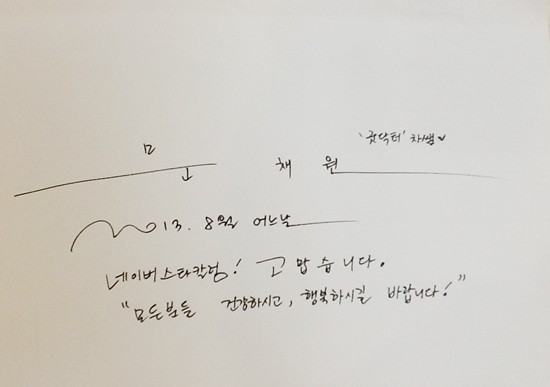 '굿닥터' 차쌤♥
문 채 원
2013. 8월 어느날
네이버스타칼럼! 고맙습니다.
"모든분들 건강하시고, 행복하시길 바랍니다!"